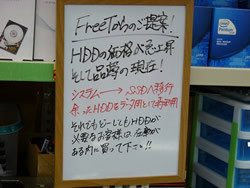 FreeTからのご提案!
HDDの価格が急上昇
そして品薄の現在!
システム→SSDへ移行
余ったHDDをデータ用として再利用
それでもどーしてもHDDが
必要なお客様は在庫が
ある内に買って下さい!!
Pentium